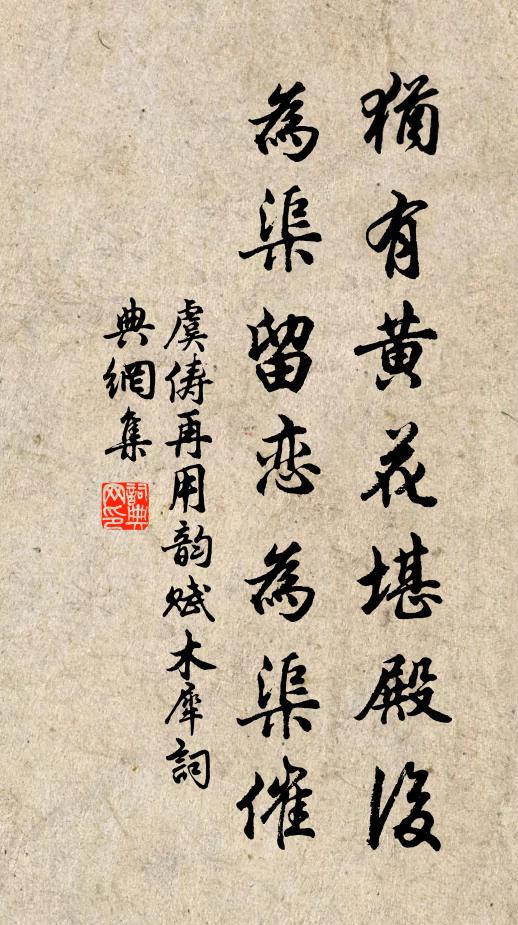 猶有黄花堪殿後
為渠留恋為渠催
虞儔再用韵赋木犀詞
典網集
詞典網印